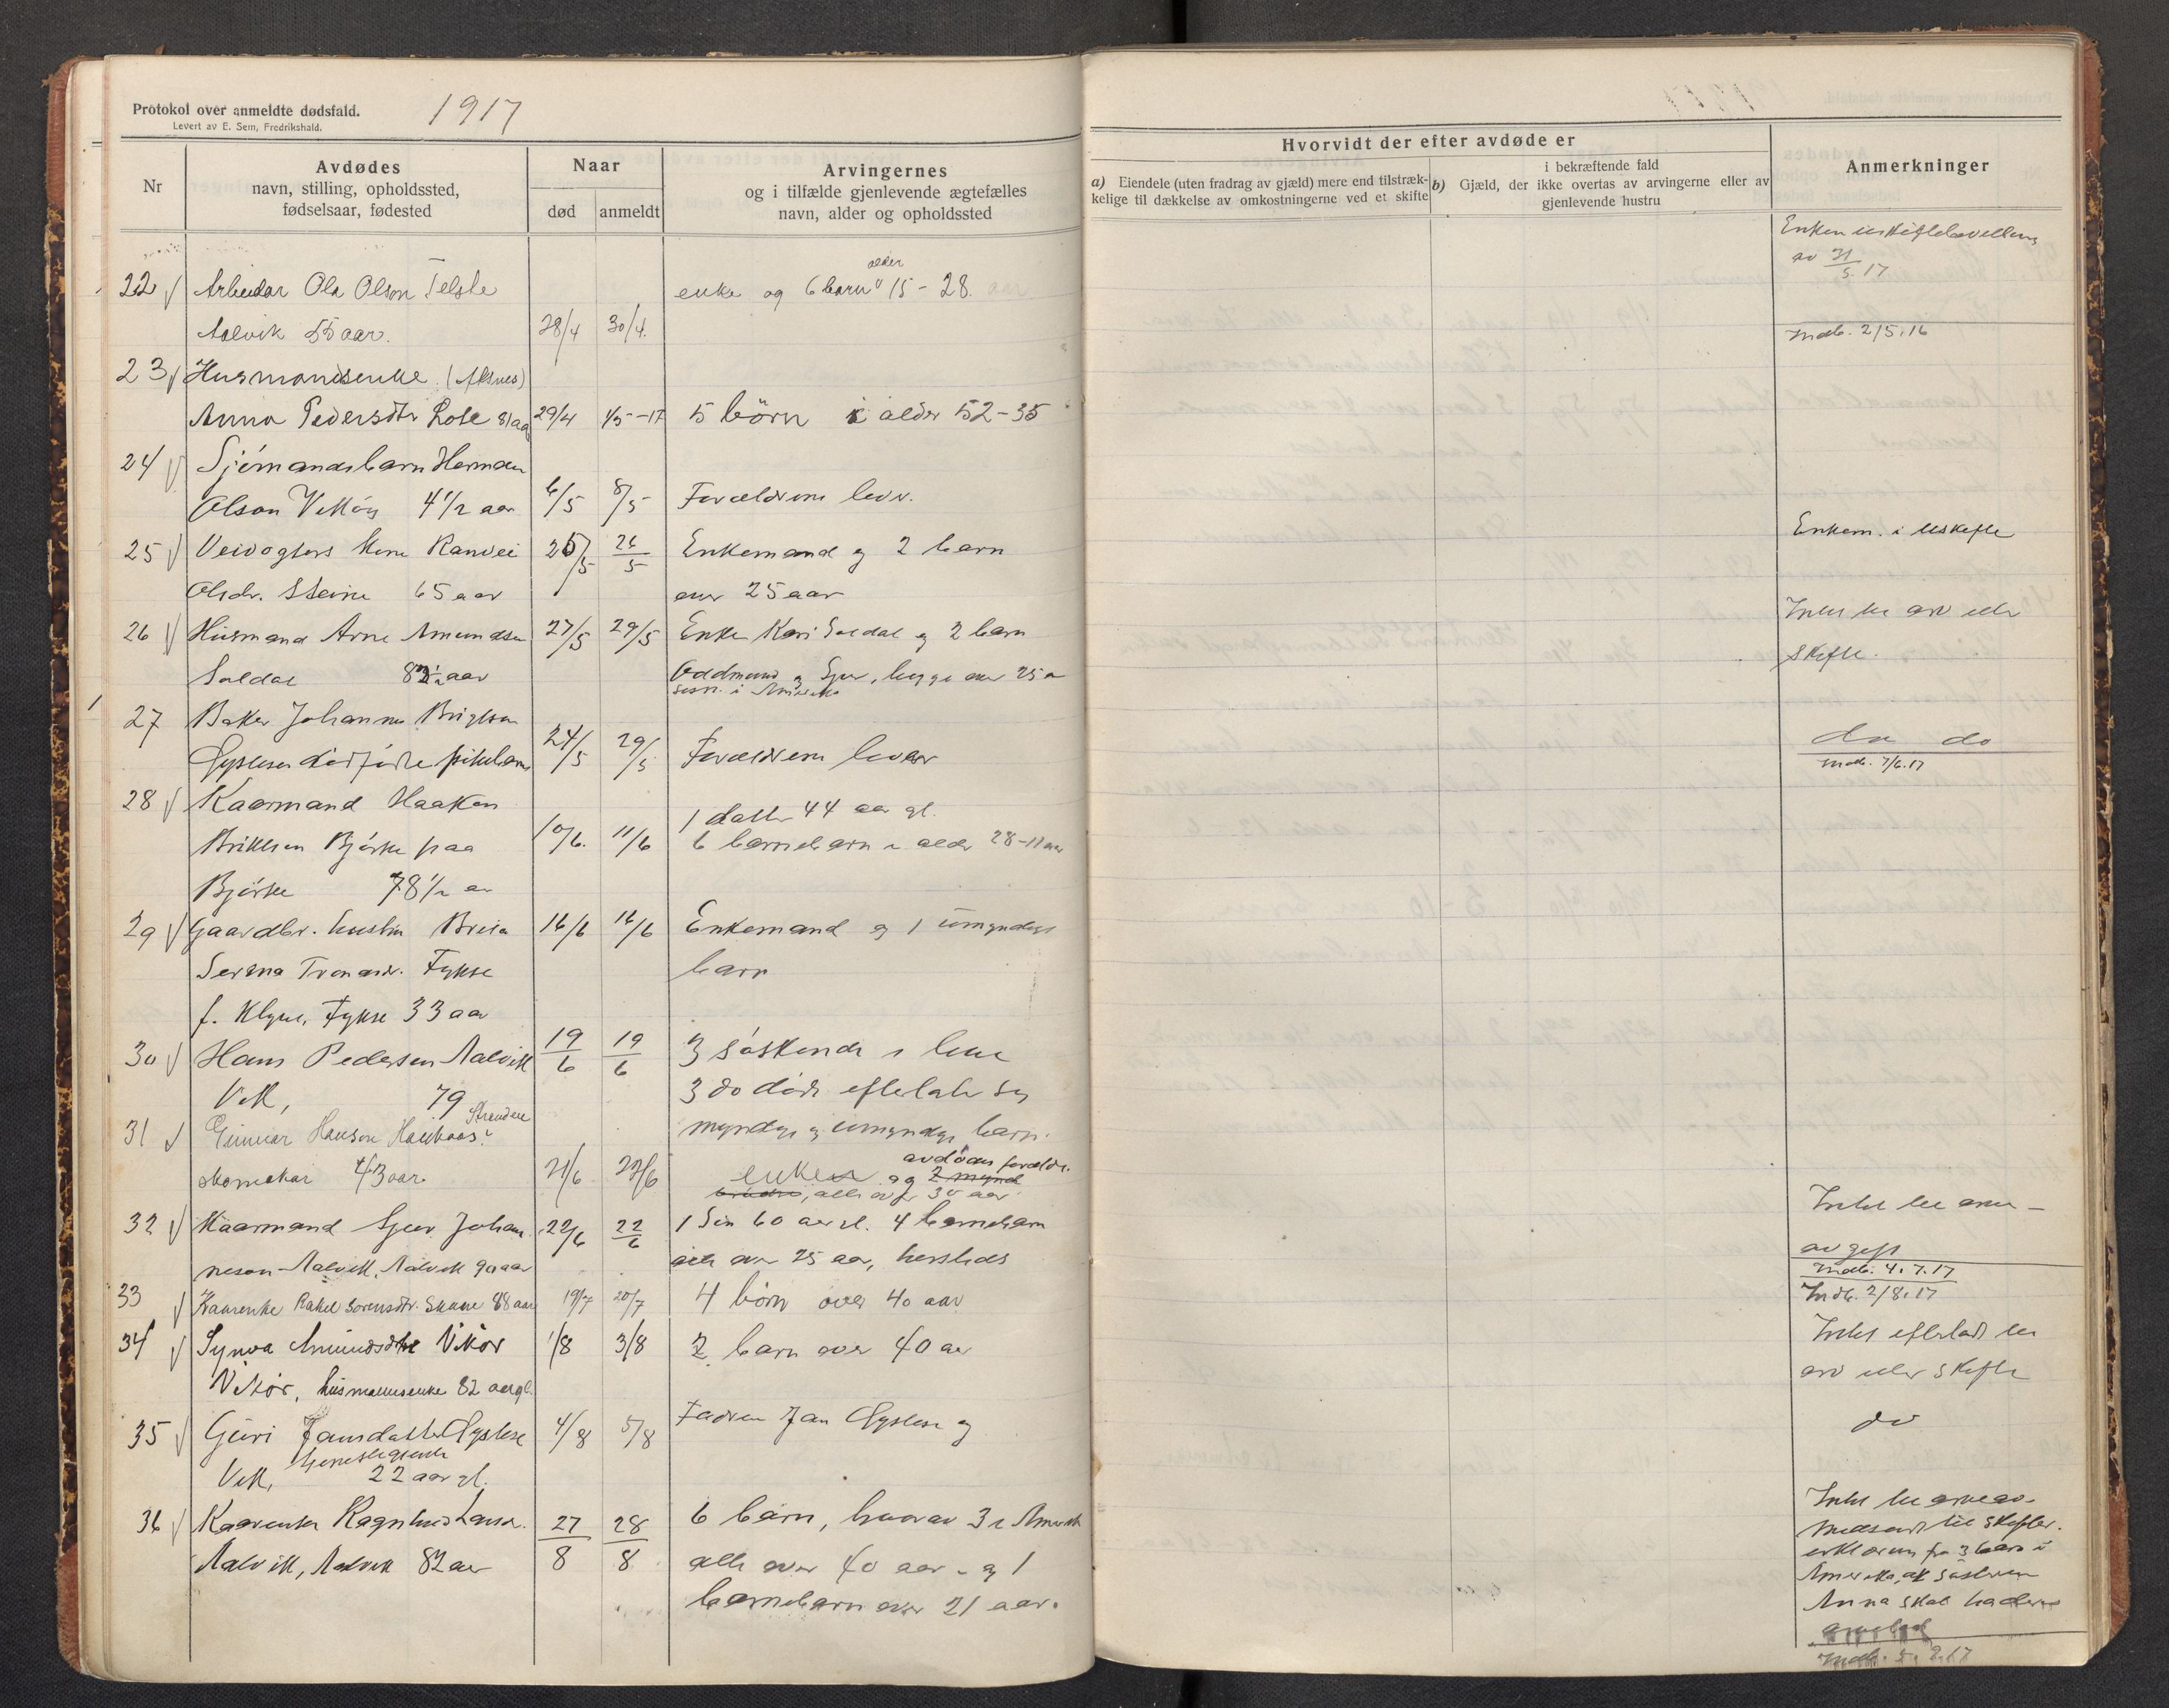 Protokol over anmeldte dødsfald.
Levert av E. Sem, Fredrikshald.
1917
Nr
Avdødes
navn, stilling, opholdssted,
fødselsaar, fødested
Naar
død
anmeldt
Arvingernes
og i tilfælde gjenlevende ægtefælles
navn, alder og opholdssted
Hvorvidt der efter avdøde er
a) Eiendele (uten fradrag av gjæld) mere end tilstræk-
kelige til dækkelse av omkostningerne ved et skifte
i bekræftende fald
b) Gjæld, der ikke overtas av arvingerne eller av
gjenlevende hustru
Anmerkninger
Enken
av 31/5 17
22 Arbeidar Ola Olson Telste
enke og 6 barn alder 15 - 28
Aalvik 55 aar. 28/4 30/4.
Indb. 2/5.16
23 Husmandsenke (Aksnes)
Anna Pedersdtr Lote 81 aar 29/4 1/5-17 5 börn i alder 52-35
24 Sjömandsbarn Herman
Olson Vikøy 4 1/2 aar 6/5 8/5 Forældrene lever.
25 Veivogters kone Ranvei 25/5 26/5 Enkemand og 2 barn
Enkem. i uskifte
Olsdr. Steine 65 aar over 25 aar
26 Husmand Arne Amundsen 27/5 29/5 Enke Kari Soldal og 2 barn
Intet til arv eller
Soldal aar Oddmund og Sjur, begge over 25 a
skifte.
sosn. i Amerika
27 Baker Johannes Brigtsen
Gyslesen dödfödte pikebarn 24/5 29/5 Forældrene lever
do do
Indb. 7/6.17
28 Kaarmand Haakon
1 datter 44 aar gl.
Brikksen Bjørke paa 10/6. 11/6 6 barnebarn i alder 28-11 aar
Bjørke 78 1/2 aar
29 Gaardbr. hustru Brita 16/6 16/6 Enkemand og 1 umyndige
Serina Tronasdr. Fykse barn
f. Klyve, Fykse 33 aar
30 Hans Pedersen Aalvik 19/6 19/6 3 söskende i live
Vik, 79 3 do döde efterlate sig
Strandere
31 Gunnar Hanson Haukaas myndige og umyndige barn.
skomakar 43 aar 21/6 22/6 enken og avdødes forældr. 2 mynd
alle over 30 aar
32 Kaarmand Sjur Johan 22/6 22/6 1 Sön 60 aar gl. 4 barnebarn
Intet til arve-
neson Aalvik, Aalvik 90 aar alle over 25 aar, herstids
avgift
Indb. 4.7.17
33 Kaarenke Rakel Sorensdtr. Skaae 88 aar 19/7 20/7 4 börn over 40 aar
Indb. 2/8.17
34 Synva Amundsdtr Vikör 1/8 3/8 2 barn over 40 aar
Intet efterladt til
Vikör, husmannsenke 82 aar gl.
arv eller skifte
35 Guri Jansdatter Gyslese 4/8 5/8 Fadren Jan Gyslese og
do
Vik, 22 aar gl.
36 Kaarenke Ragnhild Larsd. 27/8 28/8 6 barn, hvorav 3 i Amerika
Aalvik, Aalvik 82 aar alle over 40 aar og 1
barnebarn over 21 aar.
Intet til arveav.
Indsendt til skifter.
erklæring fra 3 barn i
Amerika, at søsteren
Anna skal ha deres
arvelod